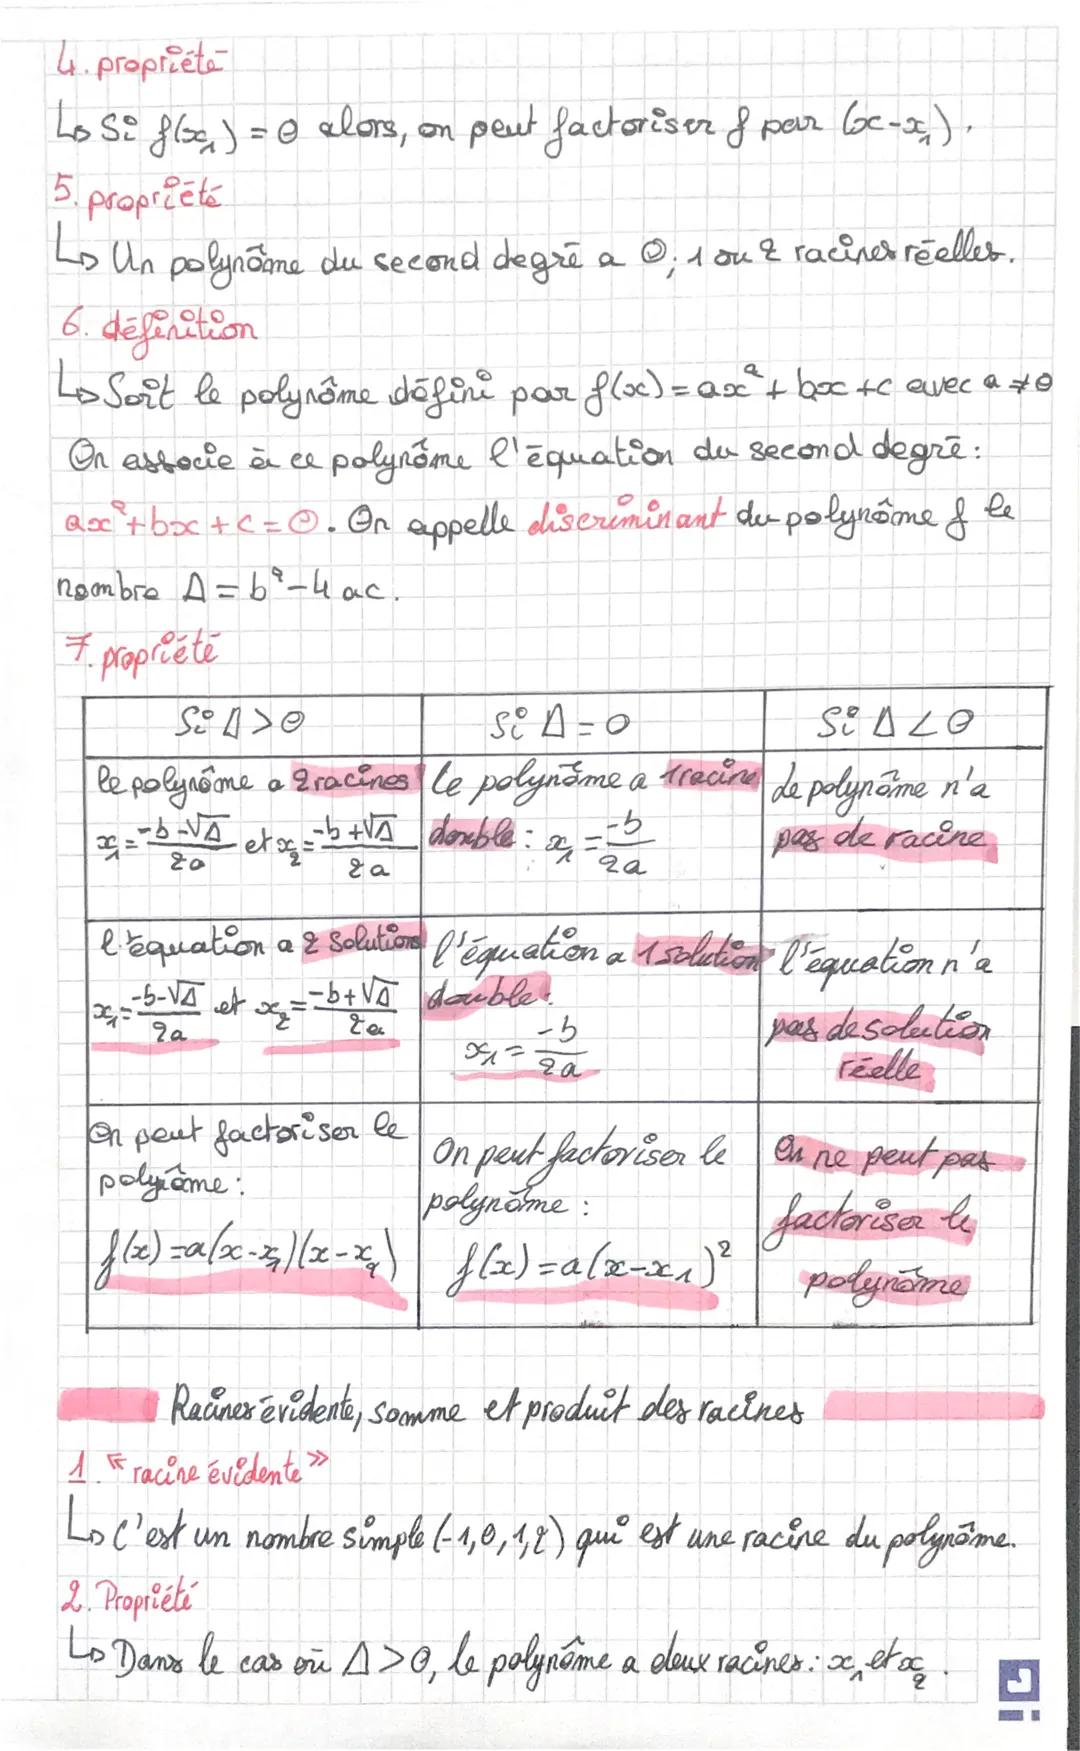 4. propriété
↳ Si f(x₁) = 0 alors, on peut factoriser f par (x-x₁).
5. propriété
↳ Un polynôme du second degré a 0; 1 ou 2 racines réelles.
6. définition
↳ Soit le polynôme défini par f(x) = ax² + bx + c avec a ≠ 0
On associe à ce polynôme l'équation du second degré :
ax² + bx + c = 0. On appelle discriminant du polynôme f le
nombre Δ = b² - 4 ac.
7. propriété
Si Δ > 0
Si Δ = 0
Si Δ < 0
le polynôme a 2 racines
x₁ = (-b - √Δ)/2a et x₂ = (-b + √Δ)/2a
Le polynôme a 1 racine
double : x₁ = -b/2a
Le polynôme n'a
pas de racine
l'équation a 2 solutions
x₁ = (-b - √Δ)/2a et x₂ = (-b + √Δ)/2a
l'équation a 1 solution
double :
x₁ = -b/2a
l'équation n'a
pas de solution
réelle
On peut factoriser le
polynôme :
f(x) = a(x-x₁)(x-x₂)
On peut factoriser le
polynôme :
f(x) = a(x-x₁)²
On ne peut pas
factoriser le
polynôme
Racines évidente, somme et produit des racines
1. « racine évidente »
↳ C'est un nombre simple (-1, 0, 1, 2) qui est une racine du polynôme.
2. Propriété
↳ Dans le cas où Δ > 0, le polynôme a deux racines : x₁ et x₂.